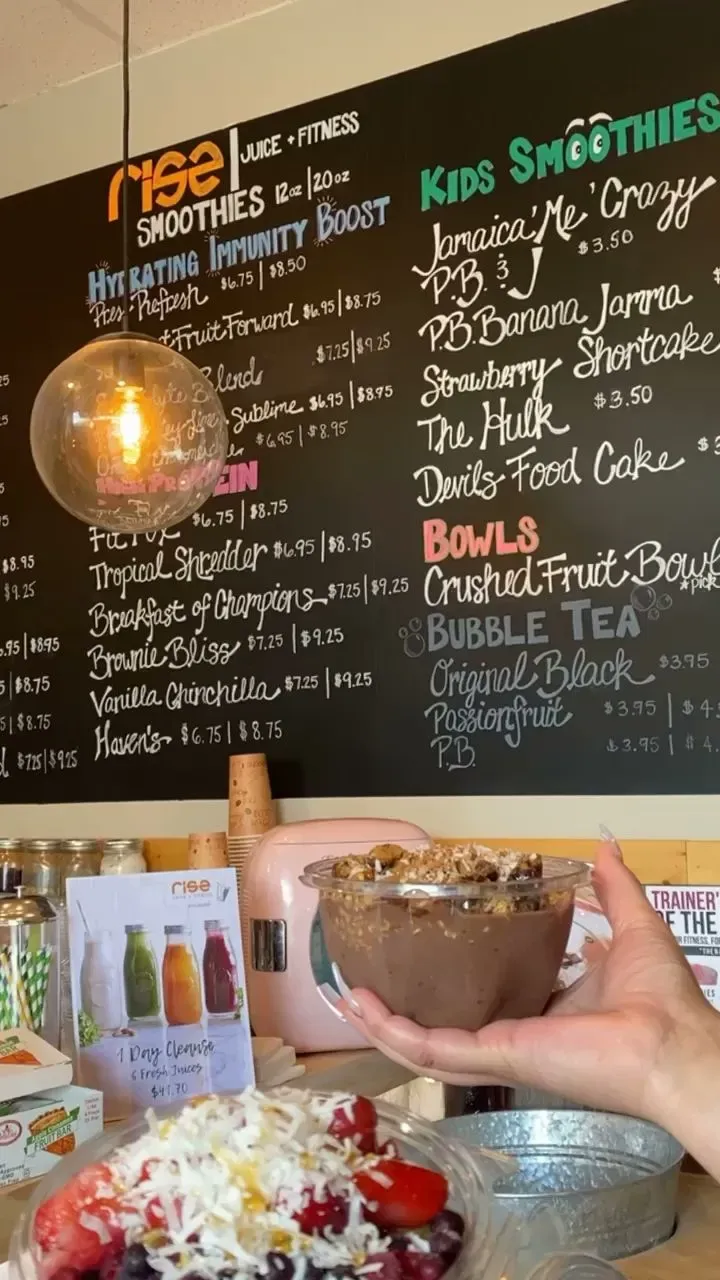 rise | JUICE + FITNESS
SMOOTHIES 12oz | 20oz
HYDRATING IMMUNITY BOOST
Pres-Refresh $6.75 | $8.50
Fruit Forward $6.95 | $8.75
Blend $7.25 | $9.25
Sublime $6.95 | $8.75
$6.95 | $8.95
PROTEIN
$6.75 | $8.75
Tropical Shredder $6.95 | $8.95
Breakfast of Champions $7.25 | $9.25
Brownie Bliss $7.25 | $9.25
Vanilla Chinchilla $7.25 | $9.25
Haven's $6.75 | $8.75
$8.95
$9.25
.95 | $8.95
| $8.75
| $8.75
$7.25 | $9.25
KIDS SMOOTHIES
Jamaica 'Me' Crazy
P.B. & J $3.50
P.B. Banana Jamma
Strawberry Shortcake
The Hulk $3.50
Devils Food Cake
BOWLS
Crushed Fruit Bowl
*pick
BUBBLE TEA
Original Black $3.95
Passionfruit $3.95 | $4.
P.B. $3.95 | $4.
rise
1 Day Cleanse
6 Fresh Juices
$41.70
TRAINER'
OF THE
FRUIT BAR